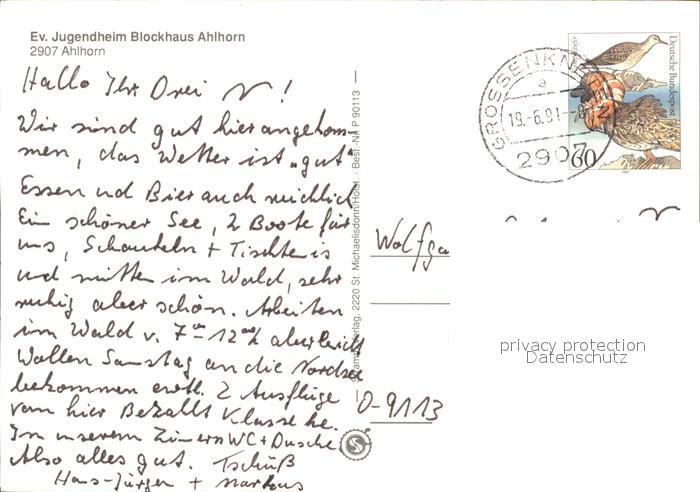 Ev. Jugendheim Blockhaus Ahlhorn
2907 Ahlhorn
Hallo Ihr Drei !
Wir sind gut hier angekom-
men, das Wetter ist "gut"
Essen und Bier auch reichlich
Ein schöner See, 2 Boote für
uns, Schaukeln + Tischtenis
und mitten im Wald, sehr
ruhig aber schön. Arbeiten
im Wald v. 7 - 12 aber leicht
Wollen Samstag an die Nordsee
bekommen evtl. 2 Ausflüge
von hier Bezahlt Klasse he.
In unserem Zimern WC + Dusche
Also alles gut. Tschüß
Hans-Jürgen + Markus
2220 St. Michaelisdonn/Holst. - Best.-Nr. P 90113
GROSSENKNE
a
19.-6.91.-
2907
Deutsche Bundespost
60
Wolfga
O-9113
privacy protection
Datenschutz